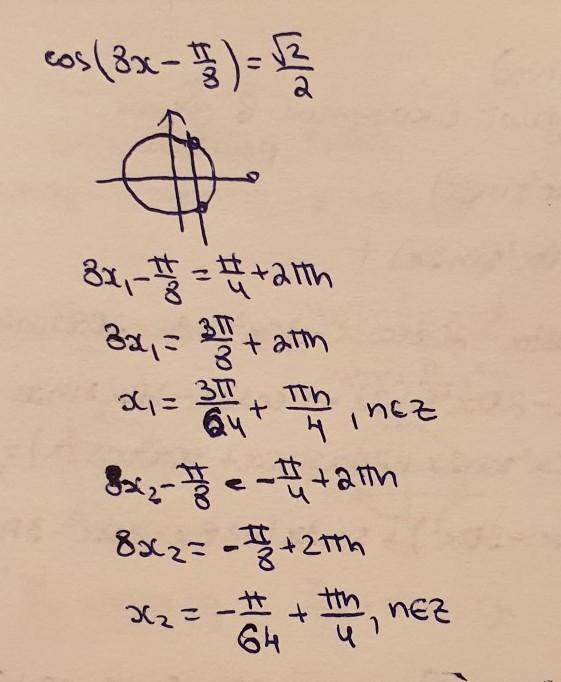 cos(8x - π/8) = √2/2
8x₁ - π/8 = π/4 + 2πn
8x₁ = 3π/8 + 2πn
x₁ = 3π/64 + πn/4, n∈Z
8x₂ - π/8 = -π/4 + 2πn
8x₂ = -π/8 + 2πn
x₂ = -π/64 + πn/4, n∈Z